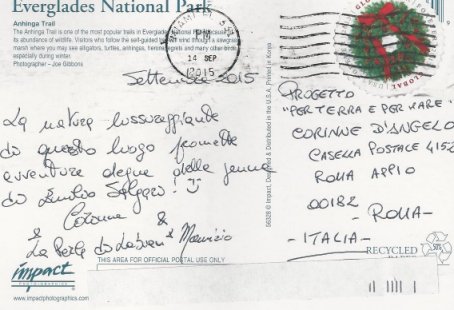 Everglades National Park
Anhinga Trail
The Anhinga Trail is one of the most popular trails in Everglades National Park because of
its abundance of wildlife. Visitors who follow the self-guided
marsh where you may see alligators, turtles, anhingas, herons, egrets and many other birds,
especially during winter.
Photographer - Joe Gibbons
MIAMI FL 331
PM
14 SEP
2015
GLOBAL
Settembre 2015
La natura lussureggiante
di questo luogo promette
avventure degne della penna
di Emilio Salgari!
&
& La Perla di Labuan & Maurizio
56328 © Impact, Designed & Distributed in the U.S.A. Printed in Korea
PROGETTO
"PER TERRA E PER MARE"
CORINNE D'ANGELO
CASELLA POSTALE 4152
ROMA APPIO
00182
- ROMA -
- ITALIA -
RECYCLED
PAPER
THIS AREA FOR OFFICIAL POSTAL USE ONLY
impact
PHOTOGRAPHICS
www.impactphotographics.com